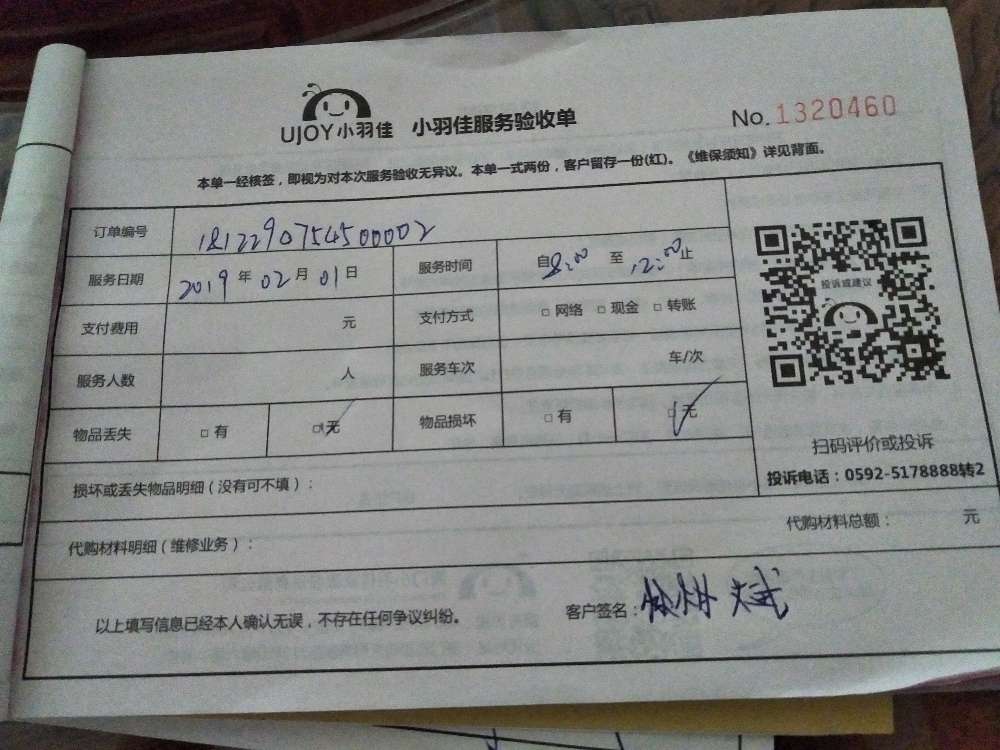 UJOY小羽佳 小羽佳服务验收单 No. 1320460
本单一经核签，即视为对本次服务验收无异议。本单一式两份，客户留存一份(红)。《维保须知》详见背面。
订单编号 1812290754500002
服务日期 2019年02月01日 服务时间 自8:00至12:00止
支付费用 元 支付方式 □网络 □现金 □转账
服务人数 人 服务车次 车/次
物品丢失 □有 □无 物品损坏 □有 □无
投诉或建议
扫码评价或投诉
投诉电话：0592-5178888转2
损坏或丢失物品明细（没有可不填）：
代购材料明细（维修业务）： 代购材料总额： 元
以上填写信息已经本人确认无误，不存在任何争议纠纷。 客户签名：